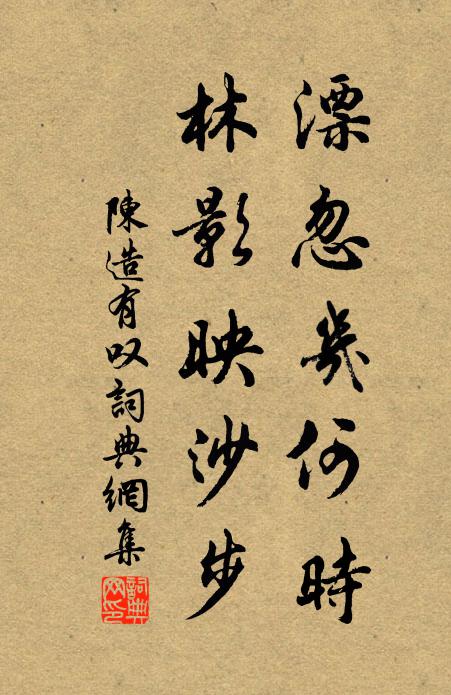 溧忽幾何時
林影映沙步
陳造有叹詞典網集
詞典网印